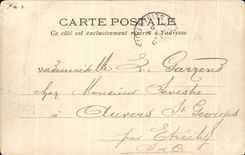 CARTE POSTALE
Ce côté est exclusivement réservé à l'adresse
Mademoiselle L. Garrend
chez Monsieur
à Auvers St Georges
par Etréchy
S & O.